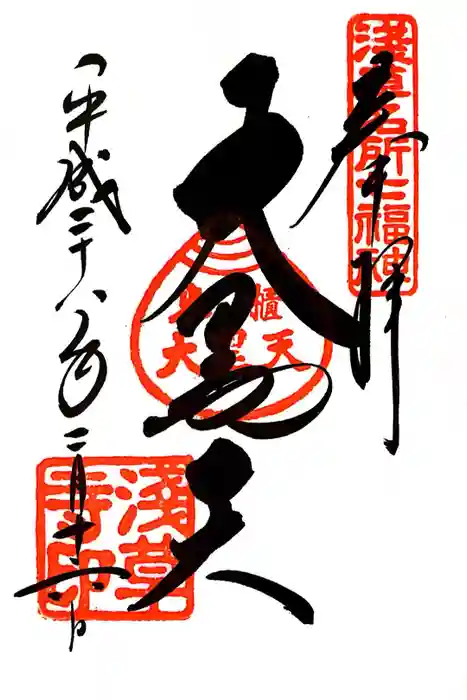 淺草名所七福神
奉拝
大黒天
櫃
大黒天
平成二十八年二月十六日
淺草寺印